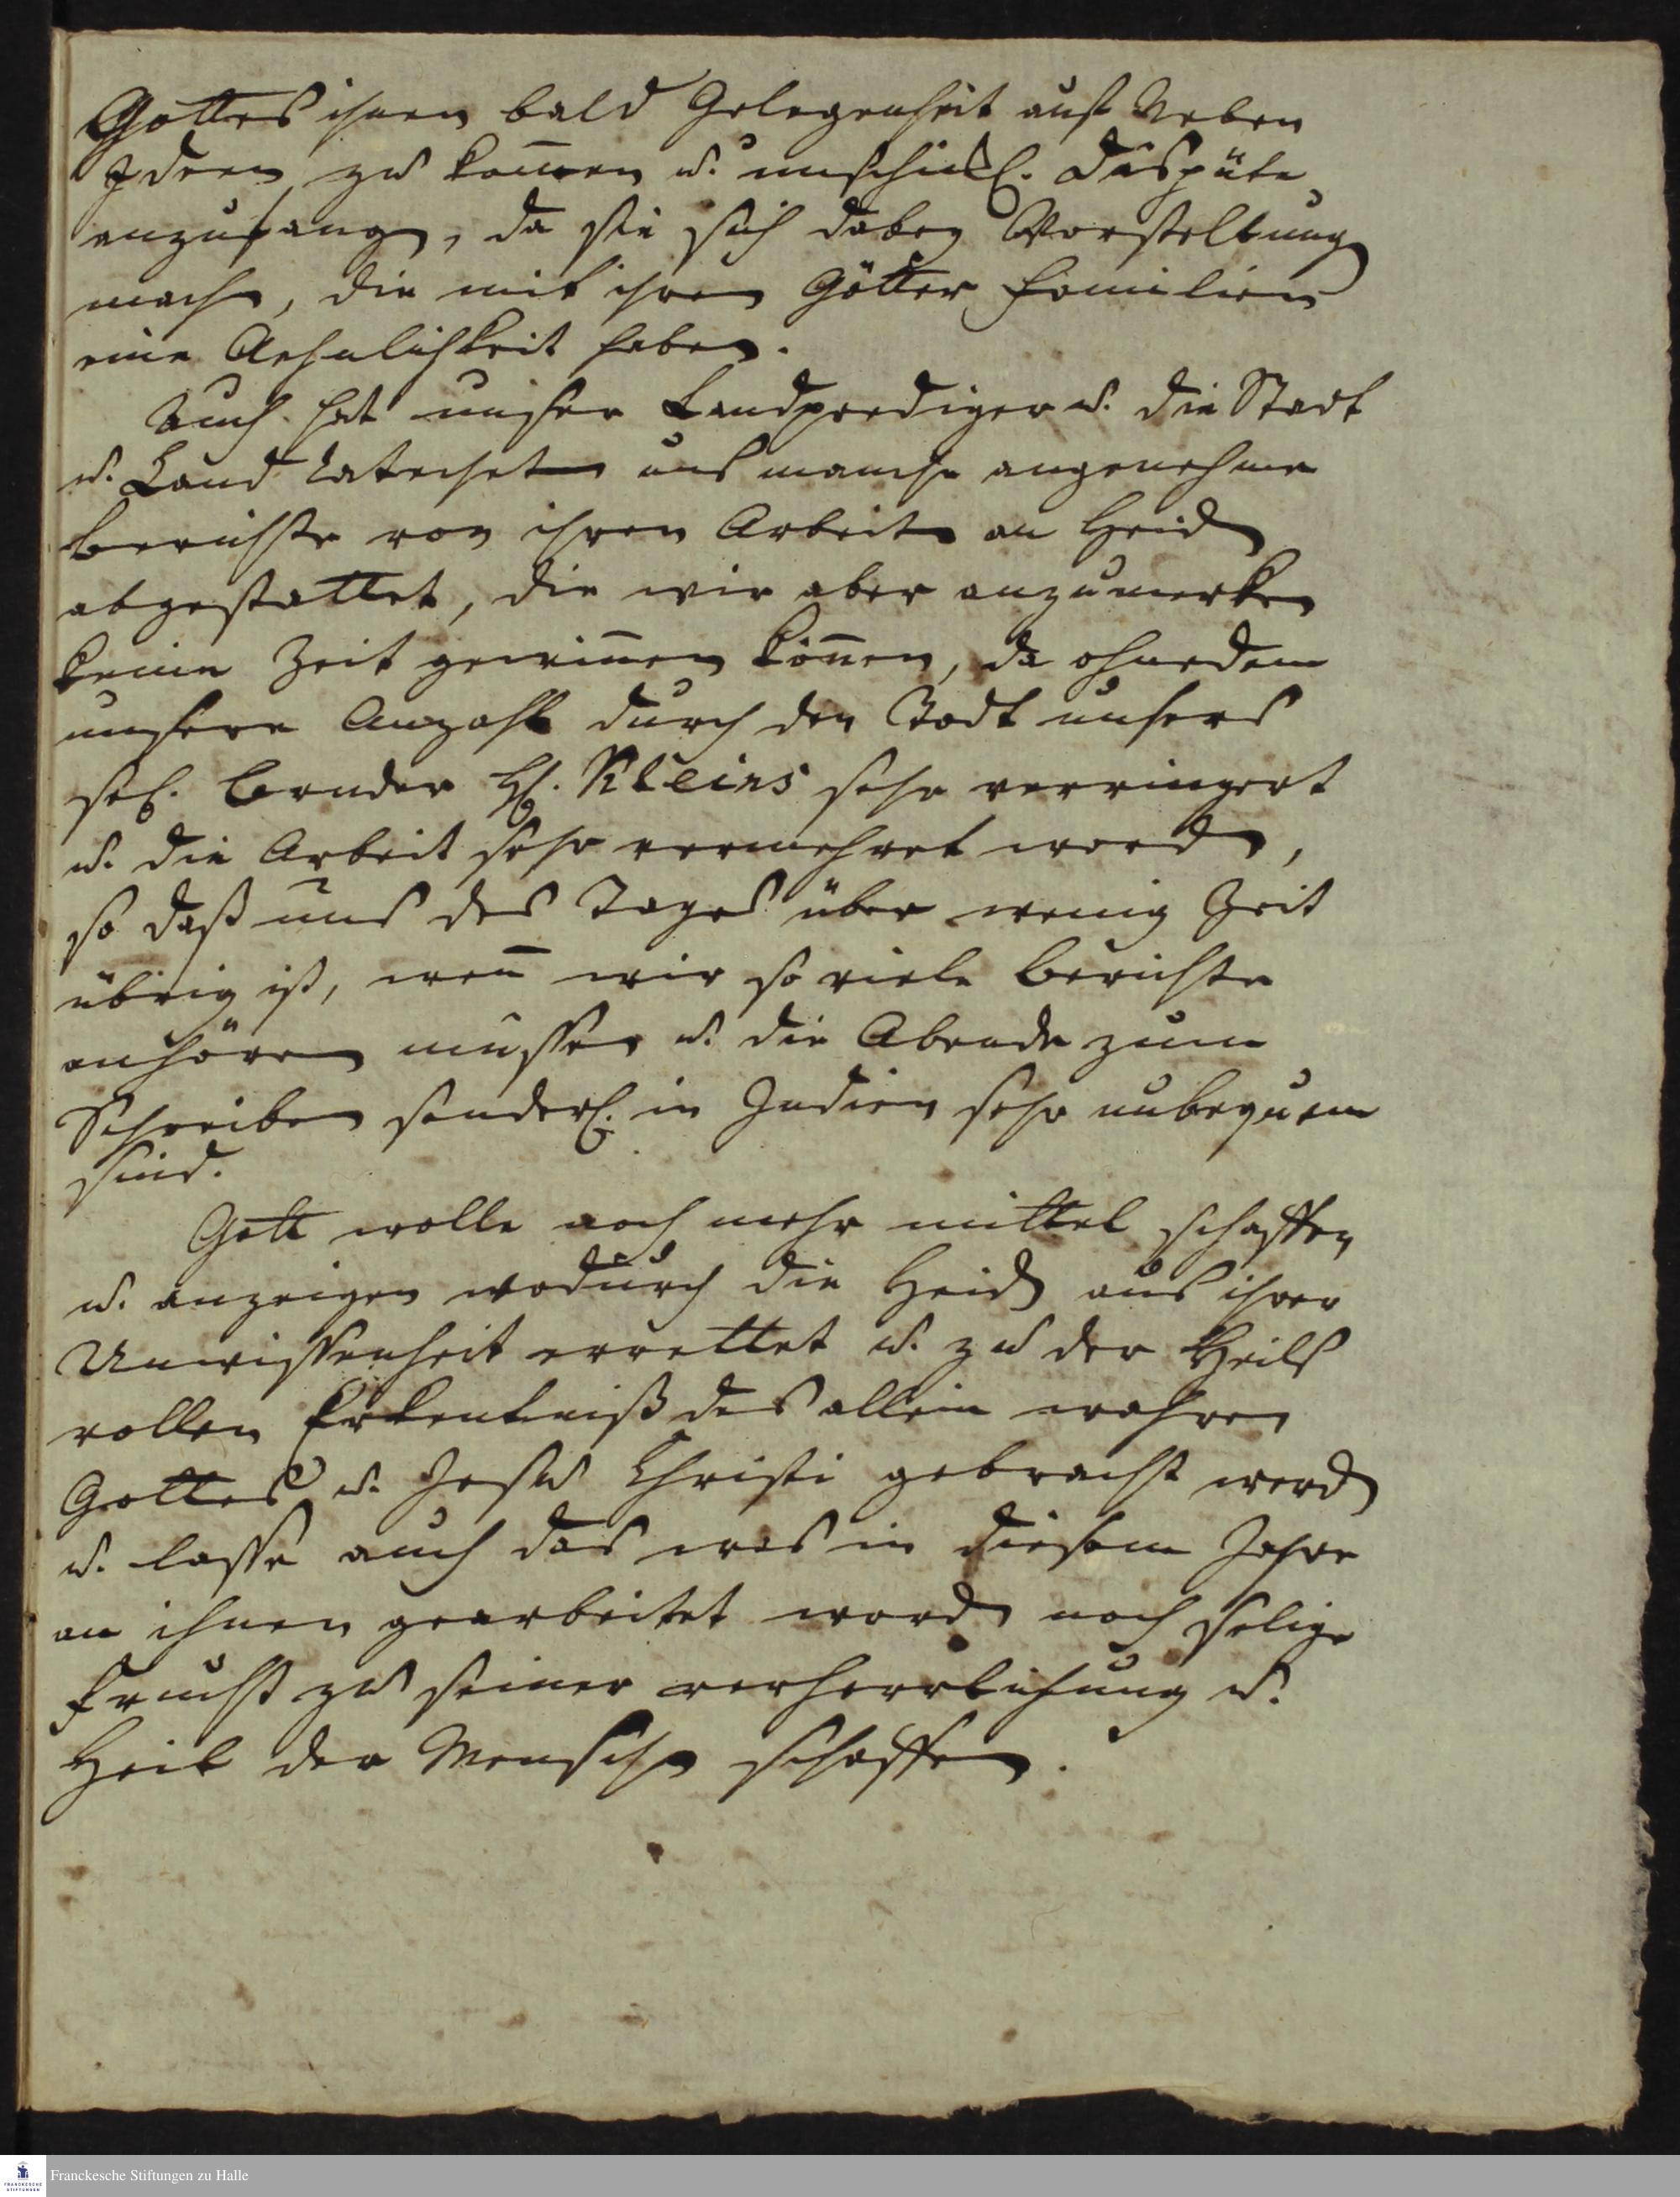 Gottes ihnen bald Gelegenheit auf Neben
Ideen zu kom̄en u. unschickl. Dispüte
anzufangen, da sie sich dabey Vorstellungen
machen, die mit ihren Götter Familien
eine Aehnlichkeit haben.
Auch hat unser Landprediger u. die Stadt
u. Land Catecheten uns manche angenehme
Berichte von ihren Arbeiten an Heiden
abgestattet, die wir aber anzumerken
keine Zeit gewin̄en kön̄en, da ohnedem
unsere Anzahl durch den Todt unsers
sel. Bruder H. Kleins sehr verringert
u. die Arbeit sehr vermehret worden,
so daß uns des Tages über wenig Zeit
übrig ist, wen̄ wir so viele Berichte
anhören müssen u. die Abende zum
Schreiben sonderl. in Indien sehr unbequem
sind.
Gott wolle noch mehr mittel schaffen
u. anzeigen wodurch die Heiden aus ihrer
Unwissenheit errettet u. zu der Heils
vollen Erkentniß des allein wahren
Gottes u. Jesu Christi gebracht werden
u. lasse auch das was in diesem Jahre
an ihnen gearbeitet worden noch selige
Frucht zu seiner verherrlichung u.
Heil der Menschen schaffen.
Franckesche Stiftungen zu Halle
FRANCKESCHE
STIFTUNGEN